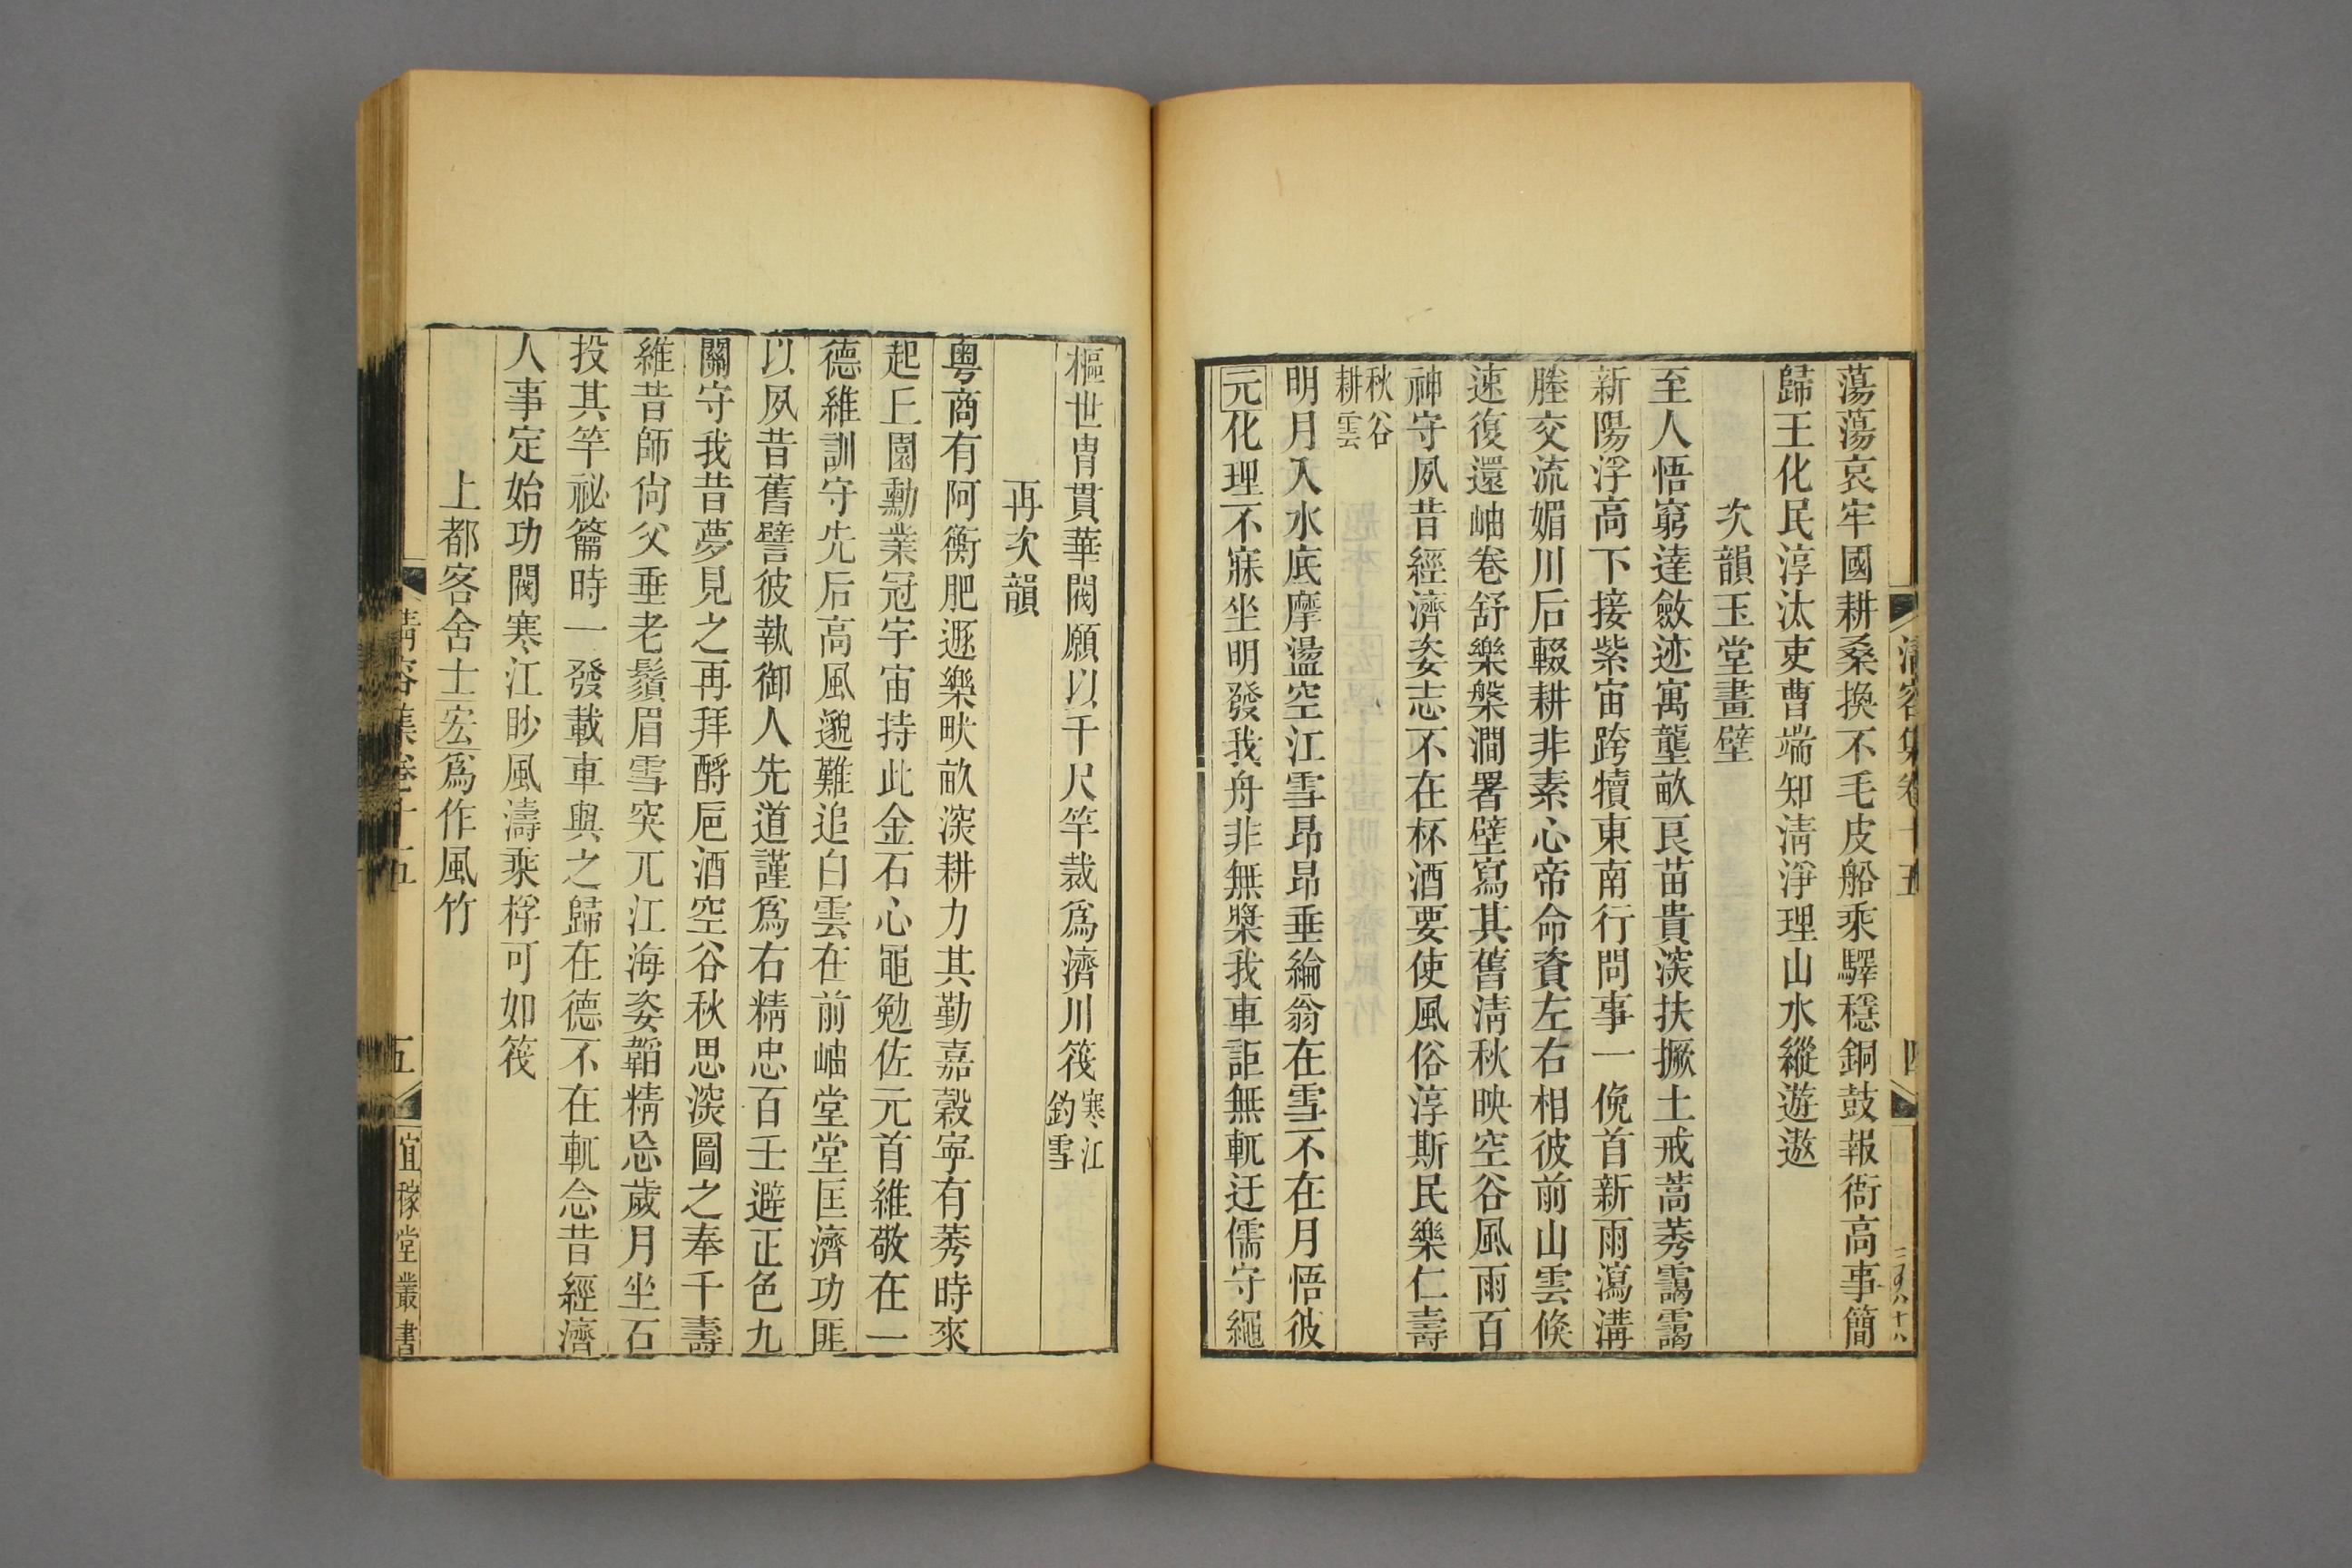 蕩蕩哀牢國耕桑換不毛皮船乘驛穩銅鼓報衙高事簡
歸王化民淳汰吏曹端知淸淨理山水縱遊遨
次韻玉堂畫壁
至人悟窮達斂迹寓壟畝艮苗貴深扶撅土戒蒿莠靄靄
新陽浮高下接紫宙跨犢東南行問事一俛首新雨瀉溝
塍交流媚川后輟耕非素心帝命資左右相彼前山雲倏
速復還岫卷舒樂槃澗署壁寫其舊淸秋映空谷風雨百
神守夙昔經濟姿志不在杯酒要使風俗淳斯民樂仁壽
秋谷
耕雲
明月入水底摩盪空江雪昂昂垂綸翁在雪不在月悟彼
元化理不寐坐明發我舟非無槳我車詎無軏迂儒守繩
淸容集卷十五
四
樞世冑貫華閥願以千尺竿裁爲濟川筏寒江
釣雪
再次韻
粵商有阿衡肥遯樂畎畝深耕力其勤嘉穀寧有莠時來
起上園勳業冠宇宙持此金石心黽勉佐元首維敬在一
德維訓守先后高風邈難追白雲在前岫堂堂匡濟功匪
以夙昔舊譬彼執御人先道謹爲右精忠百壬避正色九
關守我昔夢見之再拜酹卮酒空谷秋思深圖之奉千壽
維昔師尙父垂老鬚眉雪突兀江海姿韜精忘歲月坐石
投其竿祕籥時一發載車與之歸在德不在軏念昔經濟
人事定始功閥寒江眇風濤乘桴可如筏
上都客舍士宏爲作風竹
淸容集卷十五
五
宜稼堂叢書